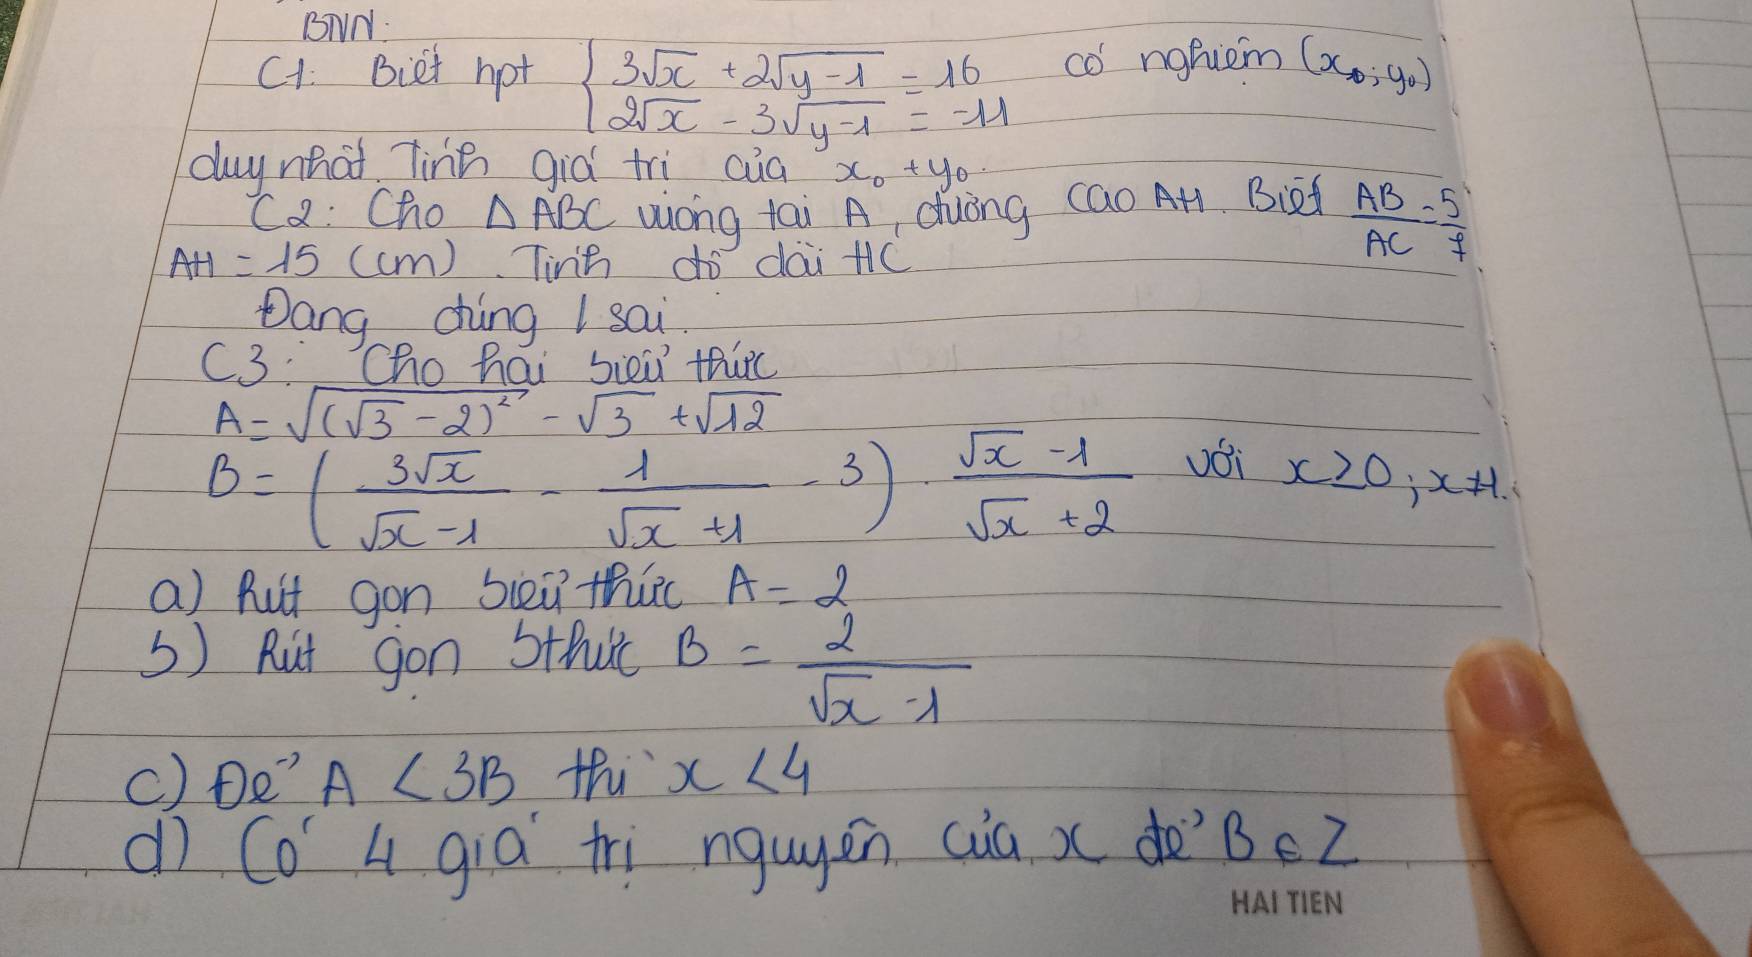 BNN.
C1: Biết hpt { 3√x + 2√(y-1) = 16 có nghiệm (x₀; y₀)
2√x - 3√(y-1) = -11
duy nhất. Tính giá trị của x₀ + y₀.
C2: Cho Δ ABC vuông tại A, đường cao AH. Biết AB/AC = 5/7
AH = 15 (cm). Tính độ dài HC
Dạng đúng / sai.
C3: Cho hai biểu thức
A = √((√3 - 2)²) - √3 + √12
B = (3√x/(√x - 1) - 1/(√x + 1) - 3) . (√x - 1)/(√x + 2) với x ≥ 0; x ≠ 1.
a) Rút gọn biểu thức A = 2
b) Rút gọn bthức B = 2/(√x - 1)
c) Để A < 3B thì x < 4
d) Có 4 giá trị nguyên của x để B ∈ Z
HAI TIEN